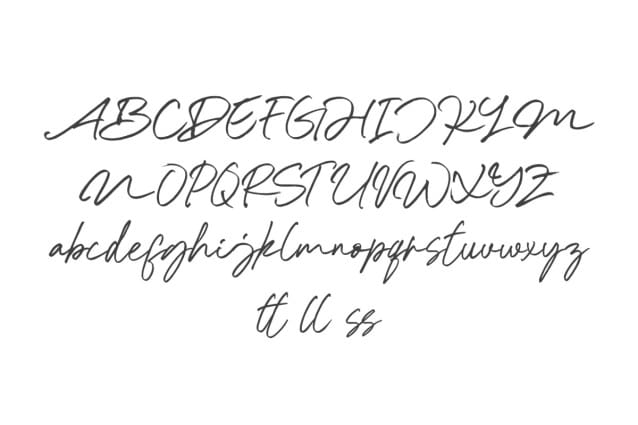 ABCDEFGHIJKLM
NOPQRSTUVWXYZ
abcdefghijklmnopqrstuvwxyz
tt ll ss